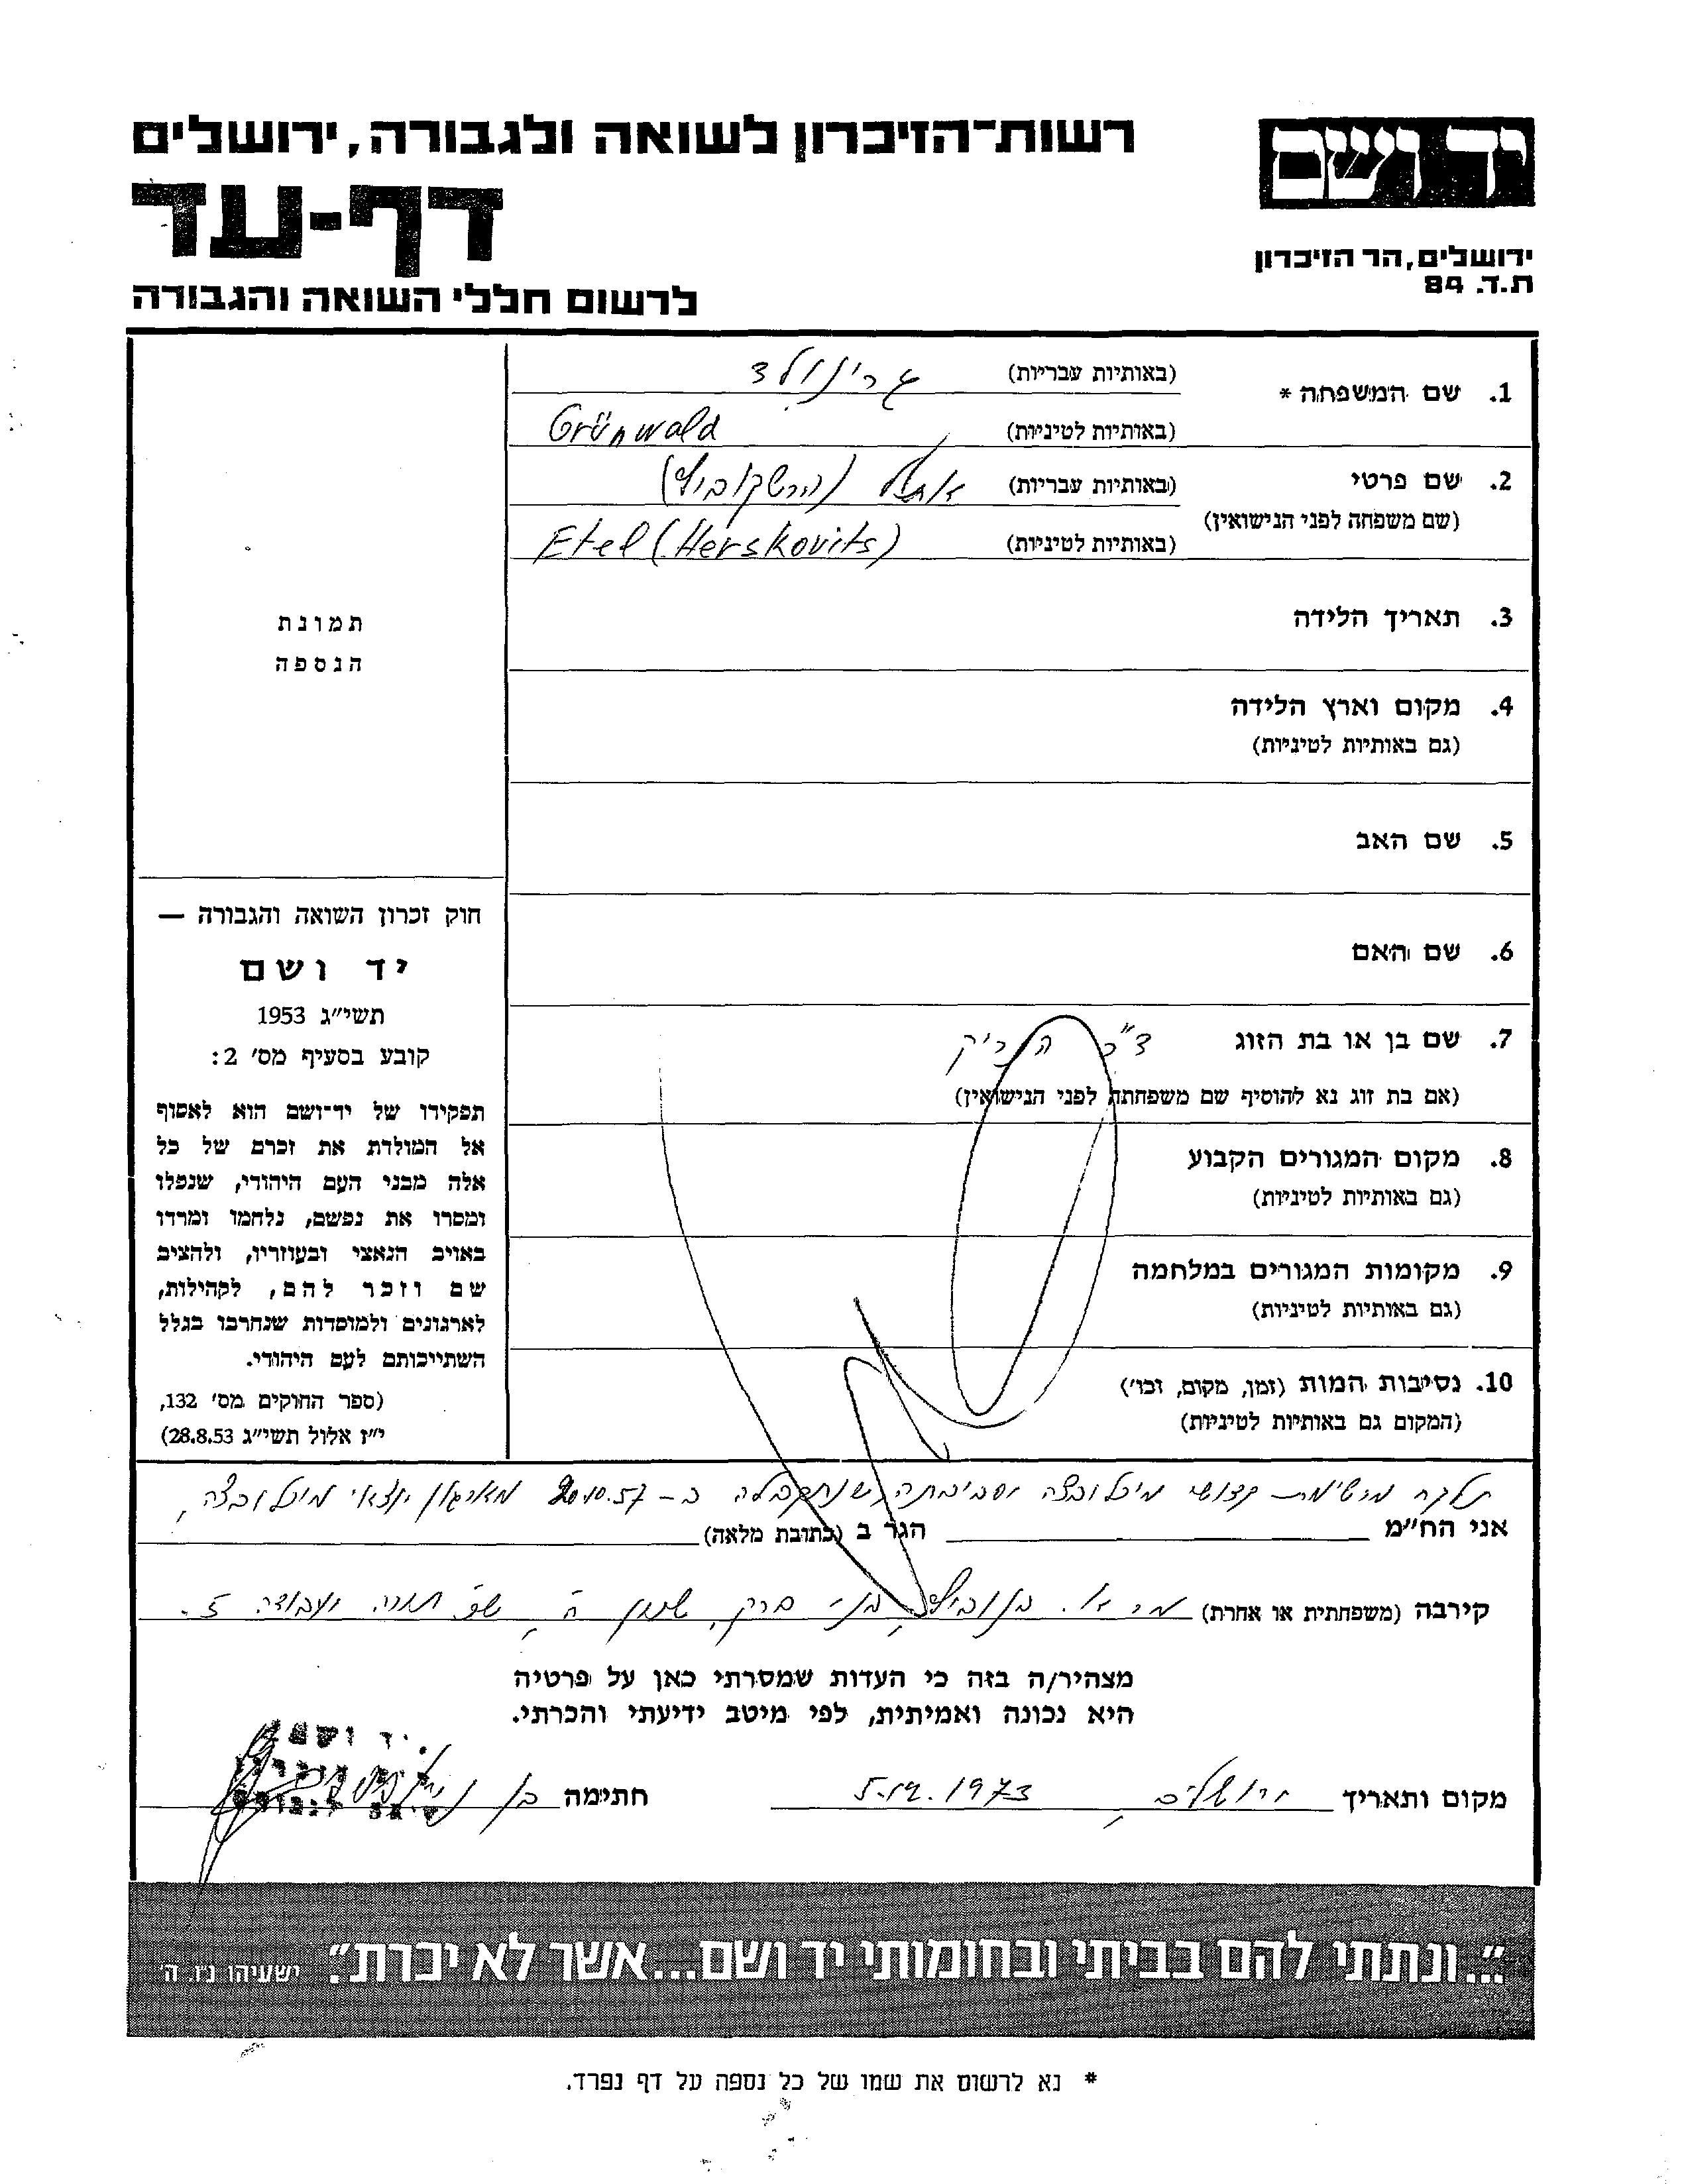 רשות־הזיכרון לשואה ולגבורה, ירושלים
יד ושם
דף-עד
ירושלים, הר הזיכרון
ת.ד. 84
לרשום חללי השואה והגבורה
1. שם המשפחה *
(באותיות עבריות) גרינולד
(באותיות לטיניות) Grünwald
2. שם פרטי
(שם משפחה לפני הנישואין)
(באותיות עבריות) אתל (הרשקוביץ)
(באותיות לטיניות) Etel (Herskovits)
3. תאריך הלידה
4. מקום וארץ הלידה
(גם באותיות לטיניות)
5. שם האב
6. שם האם
7. שם בן או בת הזוג ד"ר הנריק
(אם בת זוג נא להוסיף שם משפחתה לפני הנישואין)
8. מקום המגורים הקבוע
(גם באותיות לטיניות)
9. מקומות המגורים במלחמה
(גם באותיות לטיניות)
10. נסיבות המות (זמן, מקום, וכו')
(המקום גם באותיות לטיניות)
תמונת
הנספה
חוק זכרון השואה והגבורה —
יד ושם
תשי"ג 1953
קובע בסעיף מס' 2:
תפקידו של יד־ושם הוא לאסוף
אל המולדת את זכרם של כל
אלה מבני העם היהודי, שנפלו
ומסרו את נפשם, נלחמו ומרדו
באויב הנאצי ובעוזריו, ולהציב
שם וזכר להם, לקהילות,
לארגונים ולמוסדות שנחרבו בגלל
השתייכותם לעם היהודי.
(ספר החוקים מס' 132,
י"ז אלול תשי"ג 28.8.53)
מרשימת קדושי מיכלובצה וסביבתה שנתקבלה ב- 20.10.57 מארגון יוצאי מיכלובצה,
אני הח"מ הגר ב (כתובת מלאה)
קירבה (משפחתית או אחרת) בני ברק, שכון ה, תורה ועבודה 5.
מצהיר/ה בזה כי העדות שמסרתי כאן על פרטיה
היא נכונה ואמיתית, לפי מיטב ידיעתי והכרתי.
יד ושם
מקום ותאריך ירושלים, 5.12.1973 חתימה
"...ונתתי להם בביתי ובחומותי יד ושם...אשר לא יכרת". ישעיהו נ"ו, ה'
* נא לרשום את שמו של כל נספה על דף נפרד.